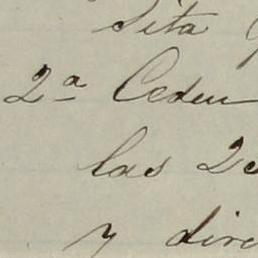 Sita
2ª Cedeu
las 2
y dire